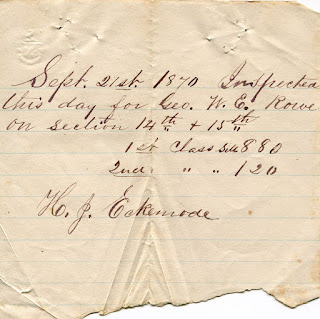 Sept. 21st. 1870 Inspected
this day for Geo. W. E. Rowe
on section 14th + 15th
1st Class 880
2nd " " 120
H. J. Eckenrode